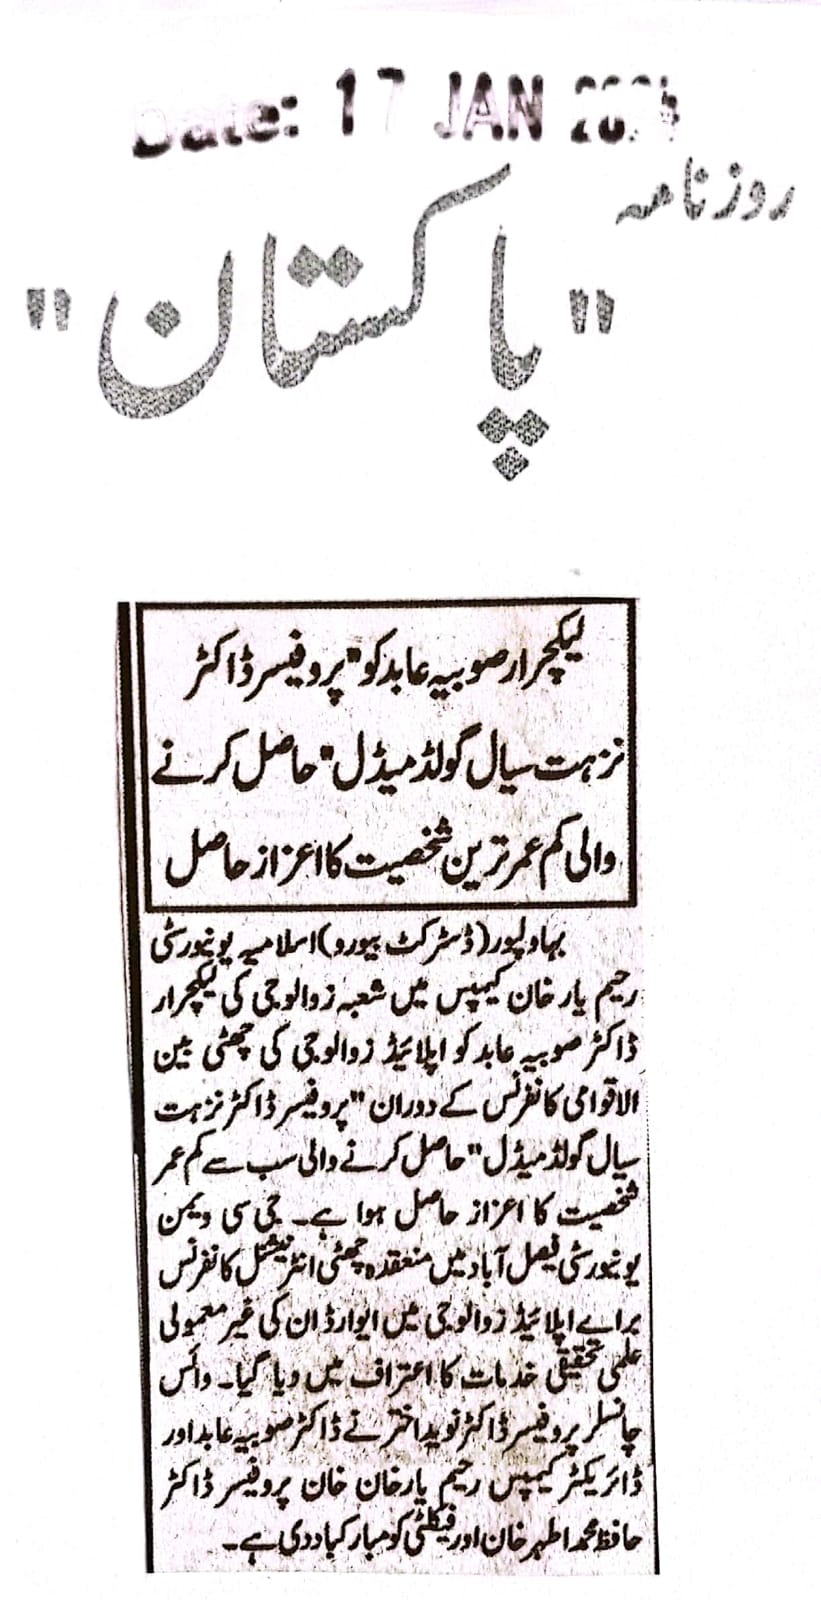 Date: 17 JAN
روزنامہ
"پاکستان"
لیکچرار صوبیہ عابد کو "پروفیسر ڈاکٹر
نزہت سیال گولڈ میڈل" حاصل کرنے
والی کم عمر ترین شخصیت کا اعزاز حاصل
بہاولپور (ڈسٹرکٹ بیورو) اسلامیہ یونیورسٹی
رحیم یار خان کیمپس میں شعبہ زوالوجی کی لیکچرار
ڈاکٹر صوبیہ عابد کو اپلائیڈ زوالوجی کی چھٹی بین
الاقوامی کانفرنس کے دوران "پروفیسر ڈاکٹر نزہت
سیال گولڈ میڈل" حاصل کرنے والی سب سے کم عمر
شخصیت کا اعزاز حاصل ہوا ہے۔ جی سی ویمن
یونیورسٹی فیصل آباد میں منعقدہ چھٹی انٹرنیشنل کانفرنس
برائے اپلائیڈ زوالوجی میں ایوارڈ ان کی غیر معمولی
علمی تحقیقی خدمات کا اعتراف میں دیا گیا۔ وائس
چانسلر پروفیسر ڈاکٹر نوید اختر نے ڈاکٹر صوبیہ عابد اور
ڈائریکٹر کیمپس رحیم یار خان خان پروفیسر ڈاکٹر
حافظ محمد اطہر خان اور فیکلٹی کو مبارکباد دی ہے۔